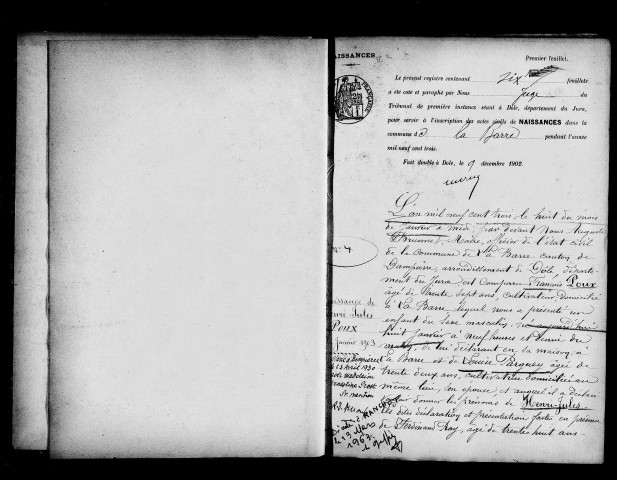 NAISSANCES
Premier feuillet.
Le présent registre contenant six feuillets
a été coté et paraphé par Nous Juge du
Tribunal de première instance séant à Dole, département du Jura,
pour servir à l'inscription des actes civils de NAISSANCES dans la
commune d La Barre pendant l'année
mil neuf cent trois.
Fait double à Dole, le 9 décembre 1902.
L'an mil neuf cent trois, le huit du mois
de janvier à midi, par devant Nous Auguste
Maire, officier de l'état civil
de la Commune de La Barre canton de
Dampierre, arrondissement de Dole, départe-
ment du Jura est comparu François Poux
âgé de trente sept ans, cultivateur, domicilié
à La Barre, lequel nous a présenté un
enfant du sexe masculin, né aujourd'hui
huit janvier à neuf heures et demie du
matin, de lui déclarant en sa maison à
La Barre et de Louise Parguey âgée de
trente deux ans, cultivatrice domiciliée au
même lieu, son épouse, et auquel il a déclaré
vouloir donner les prénoms de Henri-Jules.
Les dites déclaration et présentation faites en présence
de Ferdinand Ray, âgé de trente huit ans
N° 4
Naissance de
Henri Jules
POUX
8 janvier 1903
le 15 Avril 1930
Madeleine
Décédé à
le 13 Mars
1967